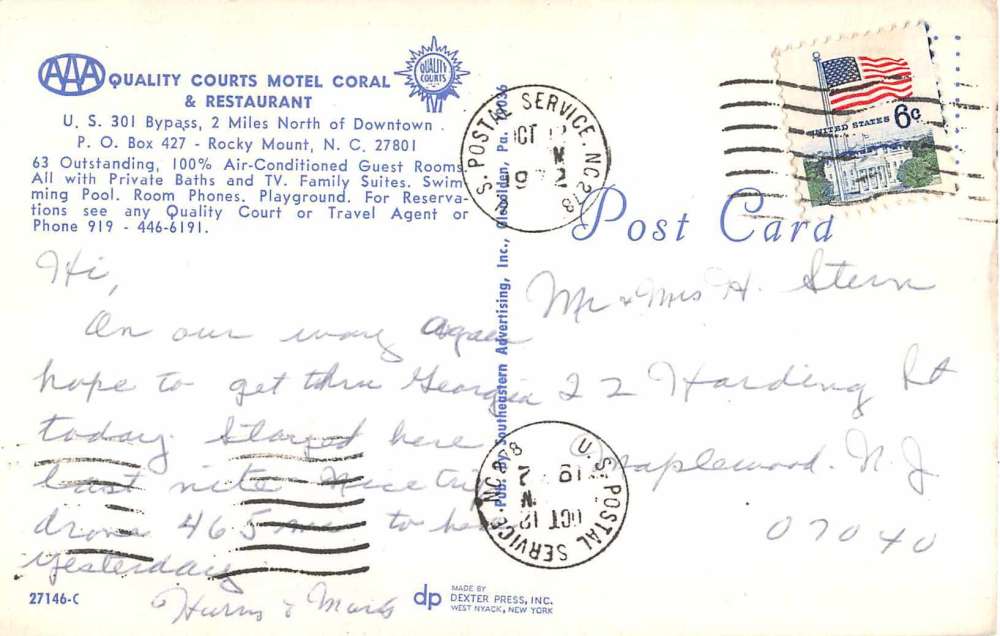 AAA QUALITY COURTS MOTEL CORAL
& RESTAURANT
QUALITY COURTS
U. S. 301 Bypass, 2 Miles North of Downtown .
P. O. Box 427 - Rocky Mount, N. C. 27801
63 Outstanding, 100% Air-Conditioned Guest Rooms
All with Private Baths and TV. Family Suites. Swim-
ming Pool. Room Phones. Playground. For Reserva-
tions see any Quality Court or Travel Agent or
Phone 919 - 446-6191.
Hi,
On our way again
hope to get thru Georgia
today. Stayed here
last nite. Nice
drove 465 mi to
yesterday
27146-C
Pub. by Southeastern Advertising, Inc., Glenolden, Pa. 19036
U. S. POSTAL SERVICE. NC 278
OCT 12
1972
UNITED STATES 6c
Post Card
Mr & Mrs H. Stern
22 Harding St
Maplewood. N. J
07040
U. S. POSTAL SERVICE. NC 278
OCT 12
dp
MADE BY
DEXTER PRESS, INC.
WEST NYACK, NEW YORK